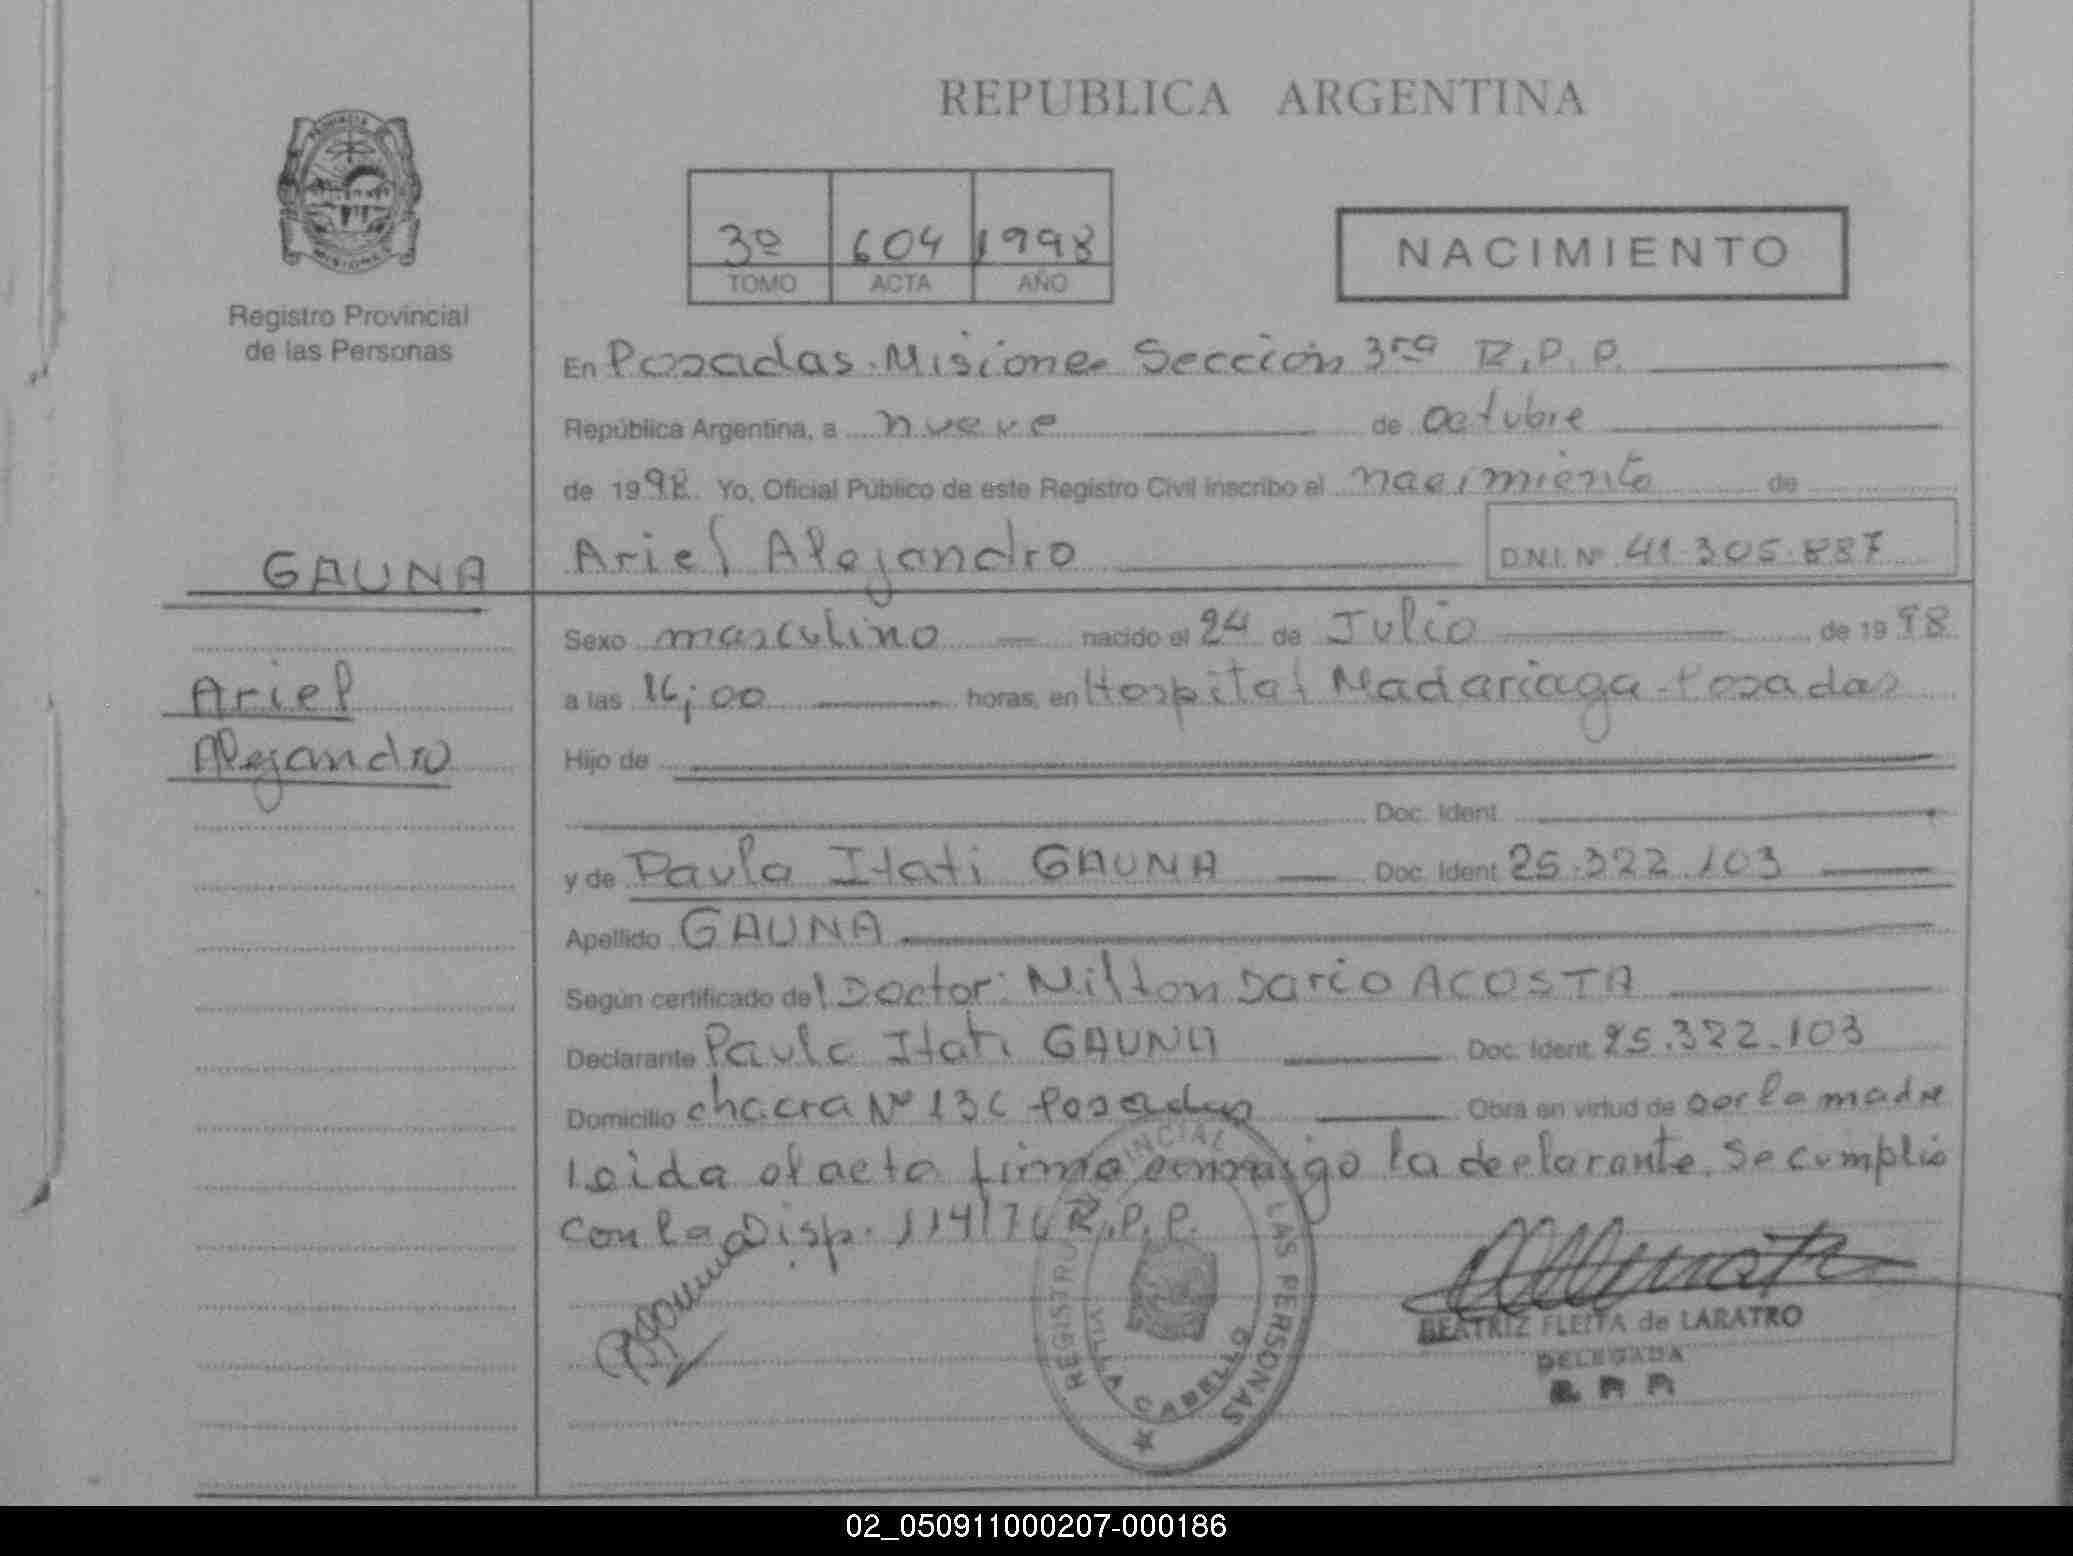 REPUBLICA ARGENTINA
PROVINCIA
MISIONES
3º 604 1998
TOMO ACTA AÑO
NACIMIENTO
Registro Provincial
de las Personas
En Posadas. Misiones Sección 3ra R.P.P.
República Argentina, a nueve de octubre
de 1998. Yo, Oficial Público de este Registro Civil inscribo el nacimiento de
GAUNA
Ariel Alejandro
D.N.I. Nº 41.305.887
Sexo masculino nacido el 24 de Julio de 1998
Ariel
a las horas, en Hospital Madariaga - Posadas
Alejandro
Hijo de
Doc. Ident.
y de Paula Itati GAUNA Doc. Ident. 25.322.103
Apellido GAUNA
Según certificado del Doctor: Milton Dario ACOSTA
Declarante Paula Itati GAUNA Doc. Ident. 25.322.103
Domicilio chacra Nº Posadas Obra en virtud de ser la madre
Leida el acta firma conmigo la declarante. Se cumplio
con la Disp. R.P.P.
REGISTRO PROVINCIAL DE LAS PERSONAS
VILLA CABELLO
BEATRIZ FLEITA de LARATRO
DELEGADA
02_050911000207-000186